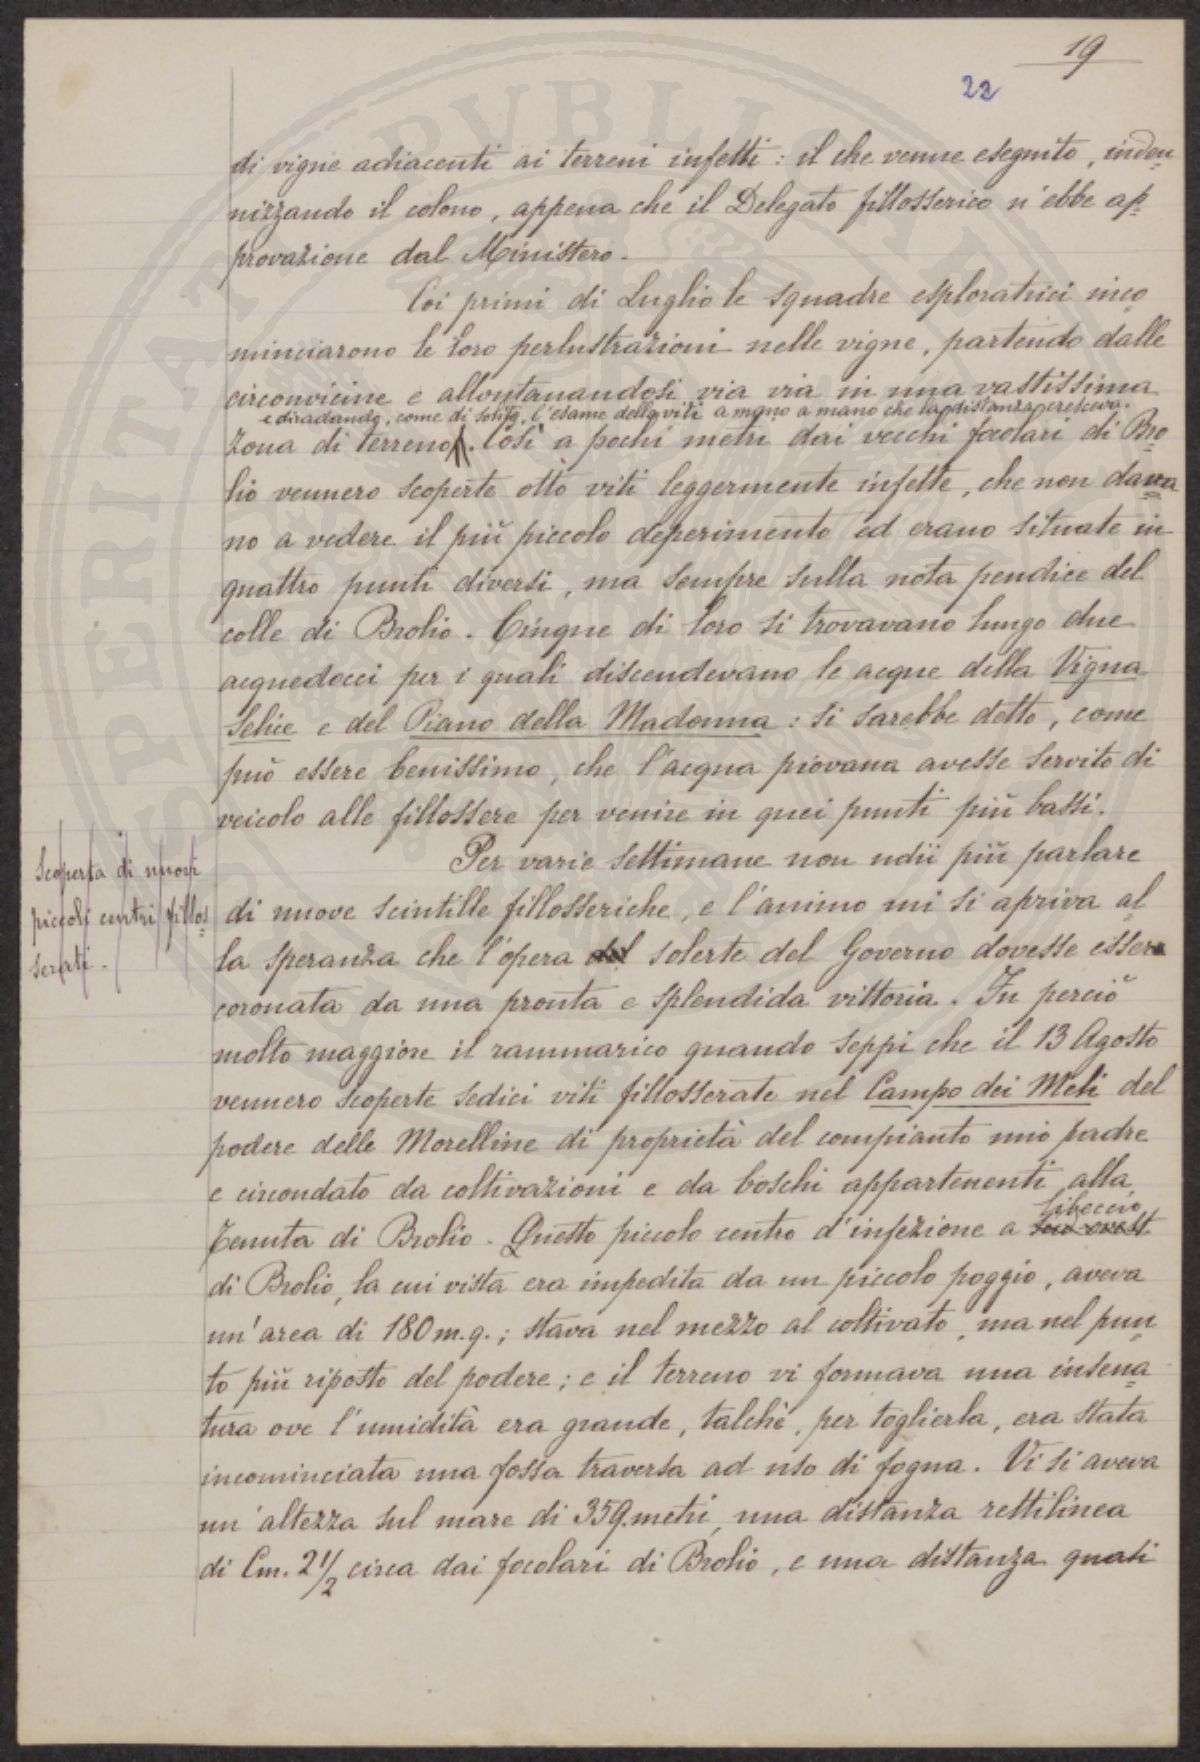 19
22
di vigne adiacenti ai terreni infetti: il che venne eseguito, inden=
nizzando il colono, appena che il Delegato fillosserico n'ebbe ap=
provazione dal Ministero.
Coi primi di Luglio le squadre esploratrici inco
minciarono le loro perlustrazioni nelle vigne, partendo dalle
circonvicine e allontanandosi via via in una vastissima
e diradando, come di solito, l'esame delle viti a mano a mano che la distanza cresceva.
zona di terreno. Così a pochi metri dai vecchi focolari di Bro=
lio vennero scoperte otto viti leggermente infette, che non dava=
no a vedere il più piccolo deperimento ed erano situate in
quattro punti diversi, ma sempre sulla nota pendice del
colle di Brolio. Cinque di loro si trovavano lungo due
acquedocci per i quali discendevano le acque della Vigna
Selice e del Piano della Madonna: si sarebbe detto, come
può essere benissimo, che l'acqua piovana avesse servito di
veicolo alle fillossere per venire in quei punti più bassi.
Scoperta di nuovi
piccoli centri fillos=
serati.
Per varie settimane non udii più parlare
di nuove scintille fillosseriche, e l'animo mi si apriva al
la speranza che l'opera del solerte del Governo dovesse essere
coronata da una pronta e splendida vittoria. Fu perciò
molto maggiore il rammarico quando seppi che il 13 Agosto
vennero scoperte sedici viti fillosserate nel Campo dei Meli del
podere delle Morelline di proprietà del compianto mio padre
e circondato da coltivazioni e da boschi appartenenti alla
libeccio
Tenuta di Brolio. Questo piccolo centro d'infezione a
di Brolio, la cui vista era impedita da un piccolo poggio, aveva
un'area di 180 m.q.; stava nel mezzo al coltivato, ma nel pun=
to più riposto del podere; e il terreno vi formava una insena=
tura ove l'umidità era grande, talchè, per toglierla, era stata
incominciata una fossa traversa ad uso di fogna. Vi si aveva
un'altezza sul mare di 359 metri, una distanza rettilinea
di Cm. 2 1/2 circa dai focolari di Brolio, e una distanza quasi